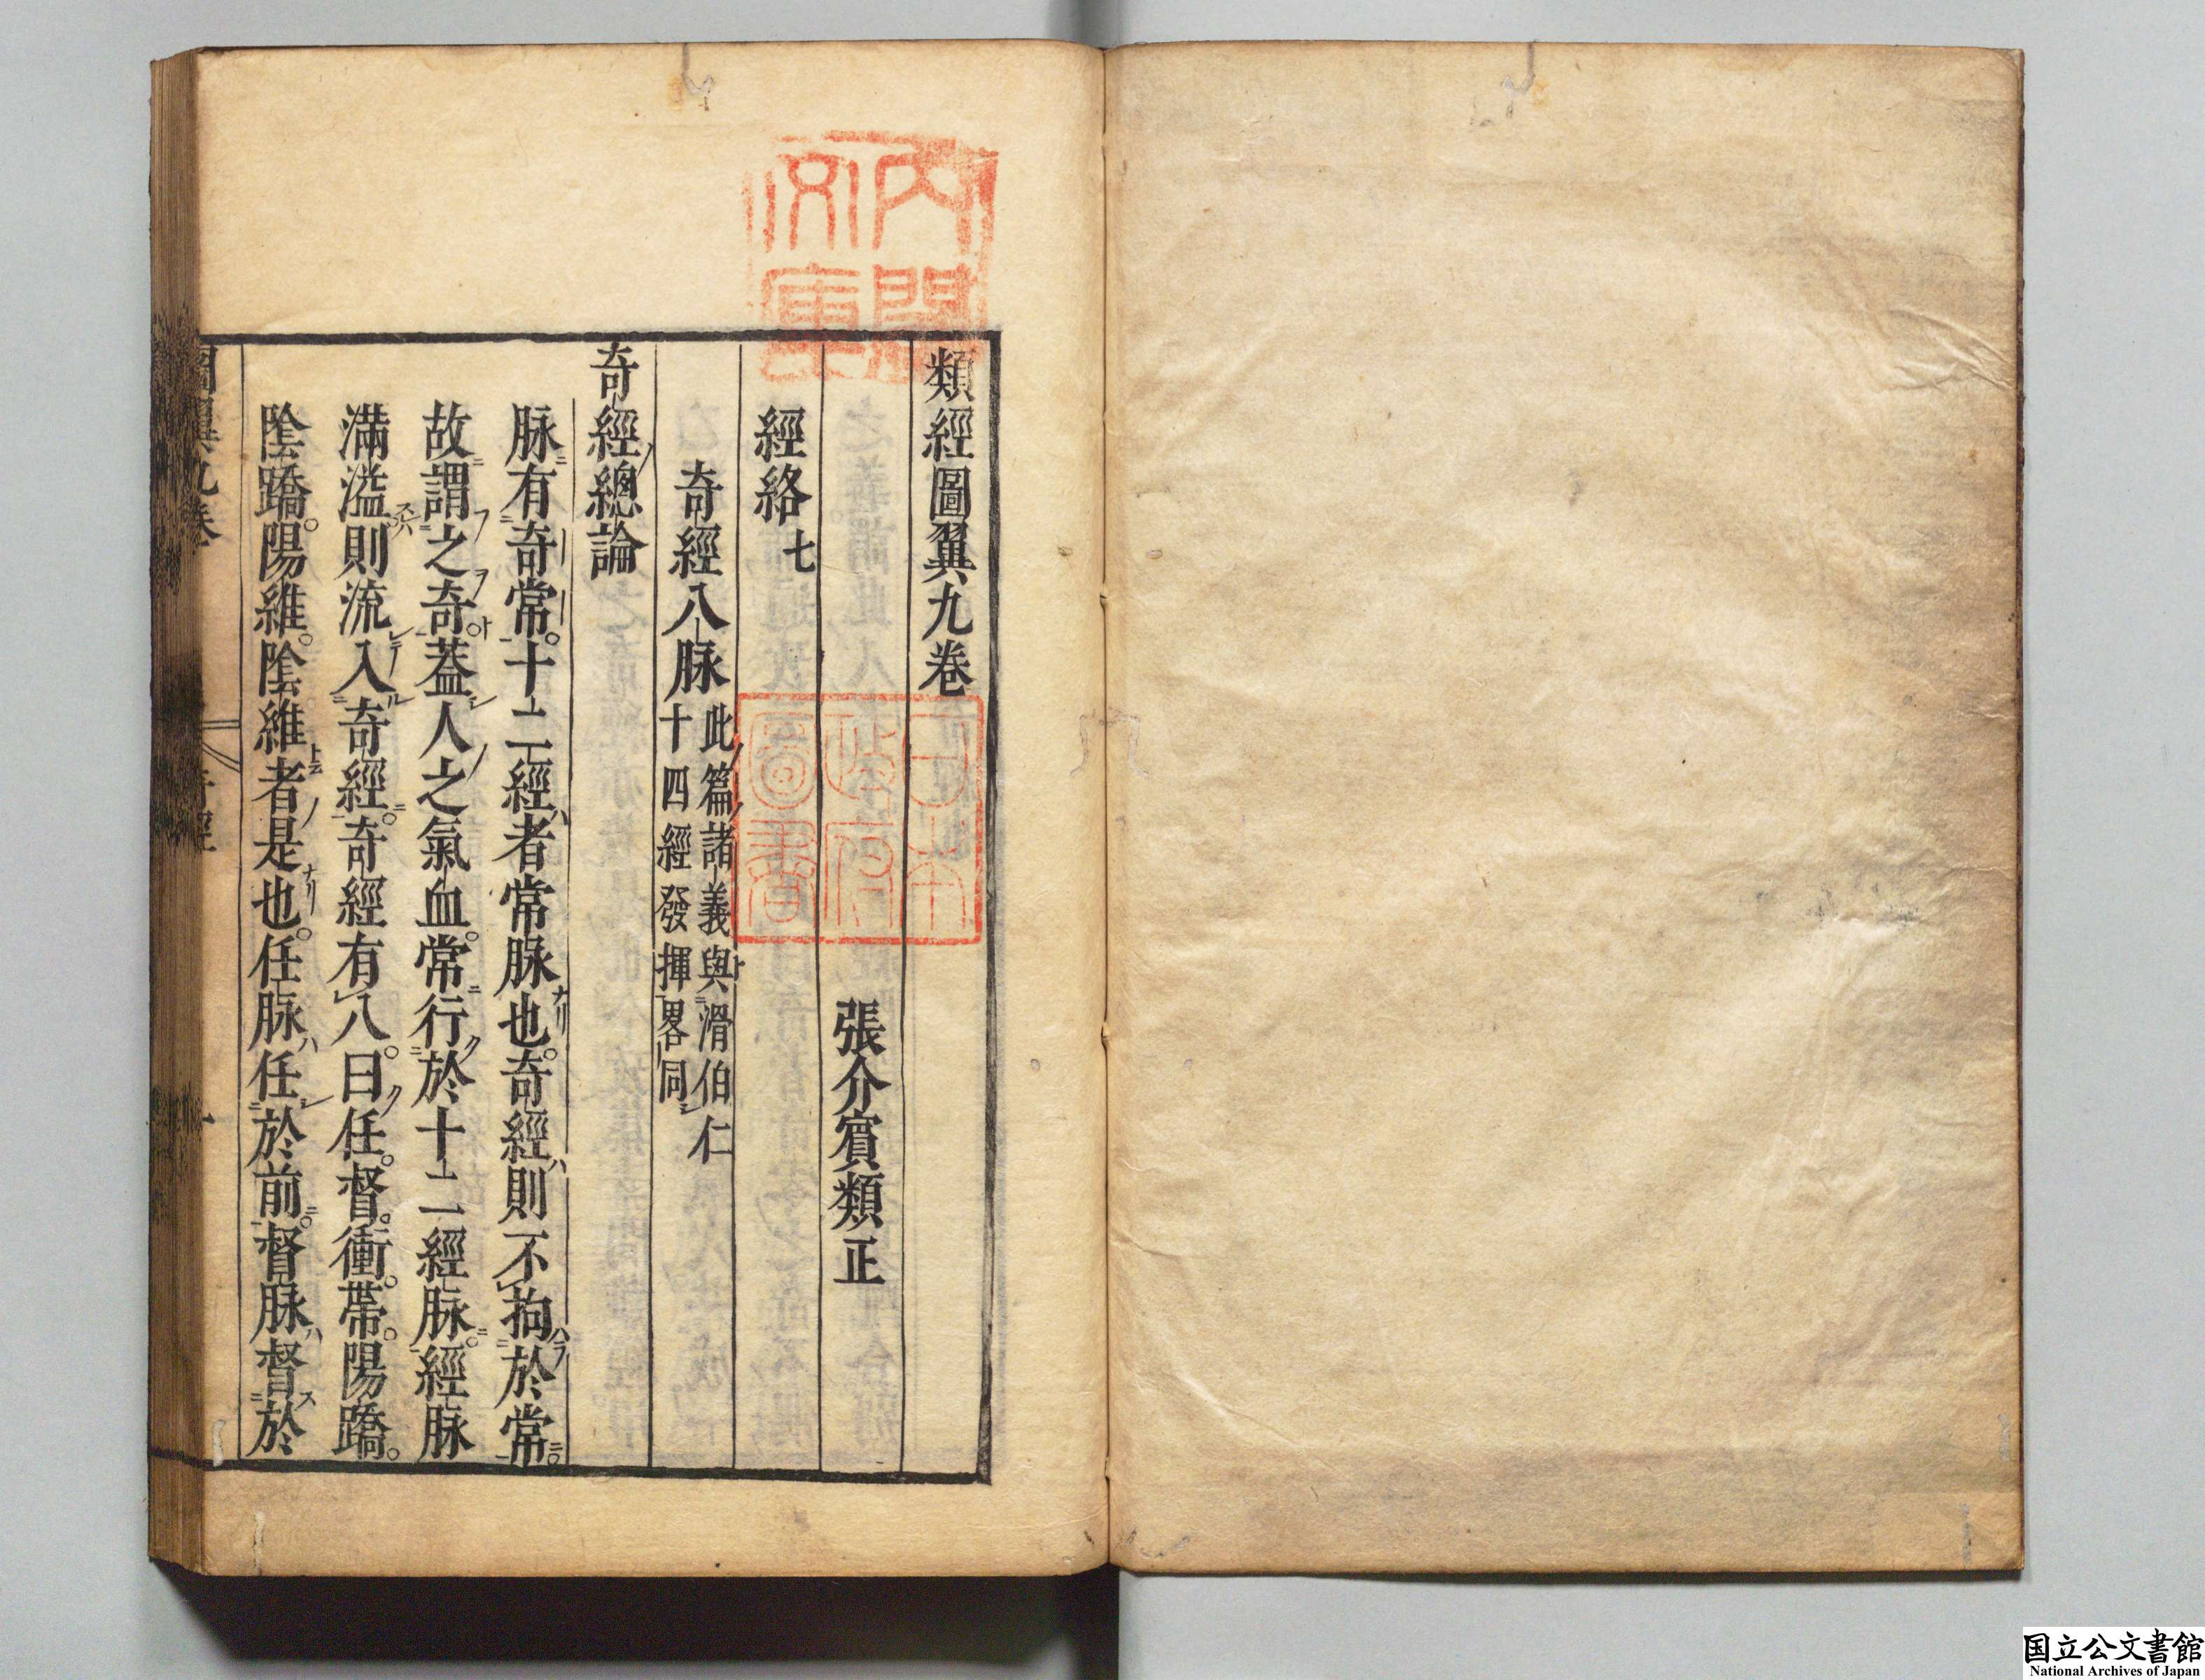 類經圖翼九卷
張介賓類正
經絡七
奇經八脉此篇諸義與滑伯仁
十四經發揮畧同
奇經總論
脉有奇常。十二經者常脉也。奇經則不拘於常。
故謂之奇。蓋人之氣血。常行於十二經脉。經脉
滿溢則流入奇經。奇經有八。曰任。督。衝。帶。陽蹻。
陰蹻。陽維。陰維者是也。任脉任於前。督脉督於
內閣
文庫
日本
政府
圖書
国立公文書館
National Archives of Japan